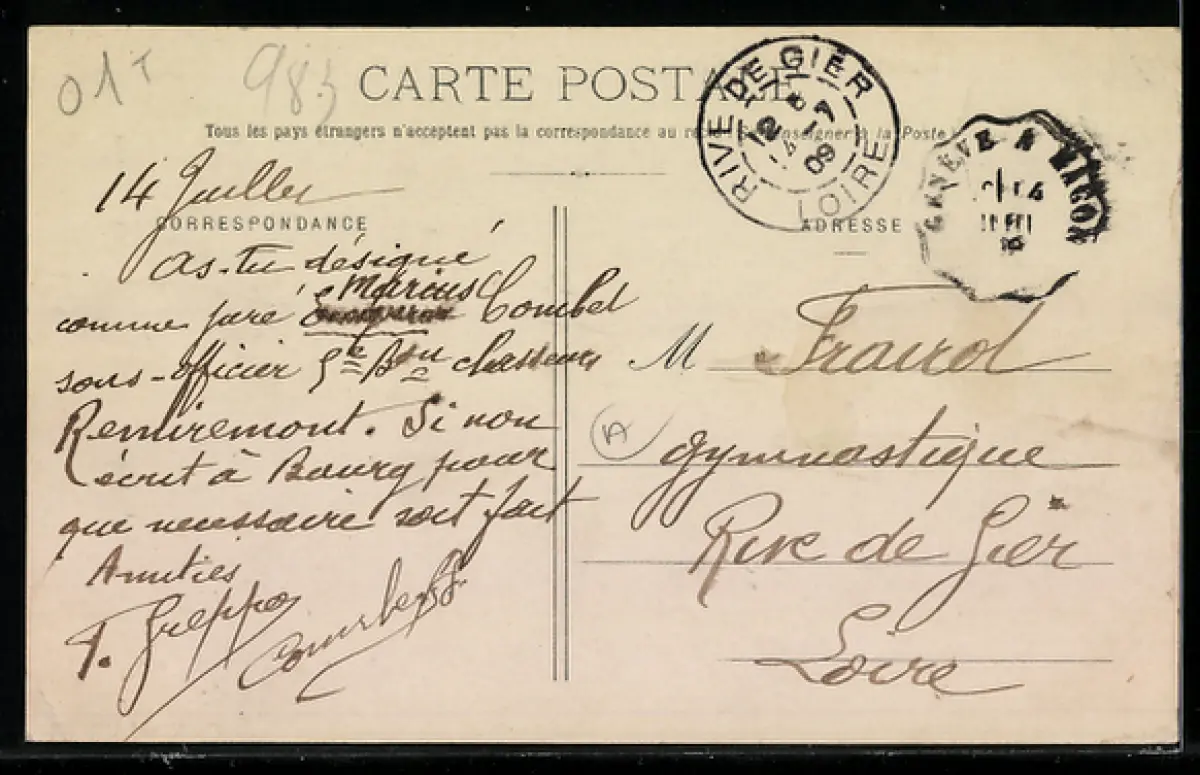 01T
983
CARTE POSTALE
Tous les pays étrangers n'acceptent pas la correspondance au recto (Se renseigner à la Poste)
RIVE DE GIER
12
5 - 7
09
LOIRE
GENÈVE A MACON
14 Juillet
CORRESPONDANCE
ADRESSE
As-tu désigné
comme juré Marius Combet
sous-officier 5e Bon chasseurs
Remiremont. Si non
écrit à Bourg pour
que necessaire soit fait
Amitiés
T. Greppo
M
gymnastique
Rive de Gier
Loire